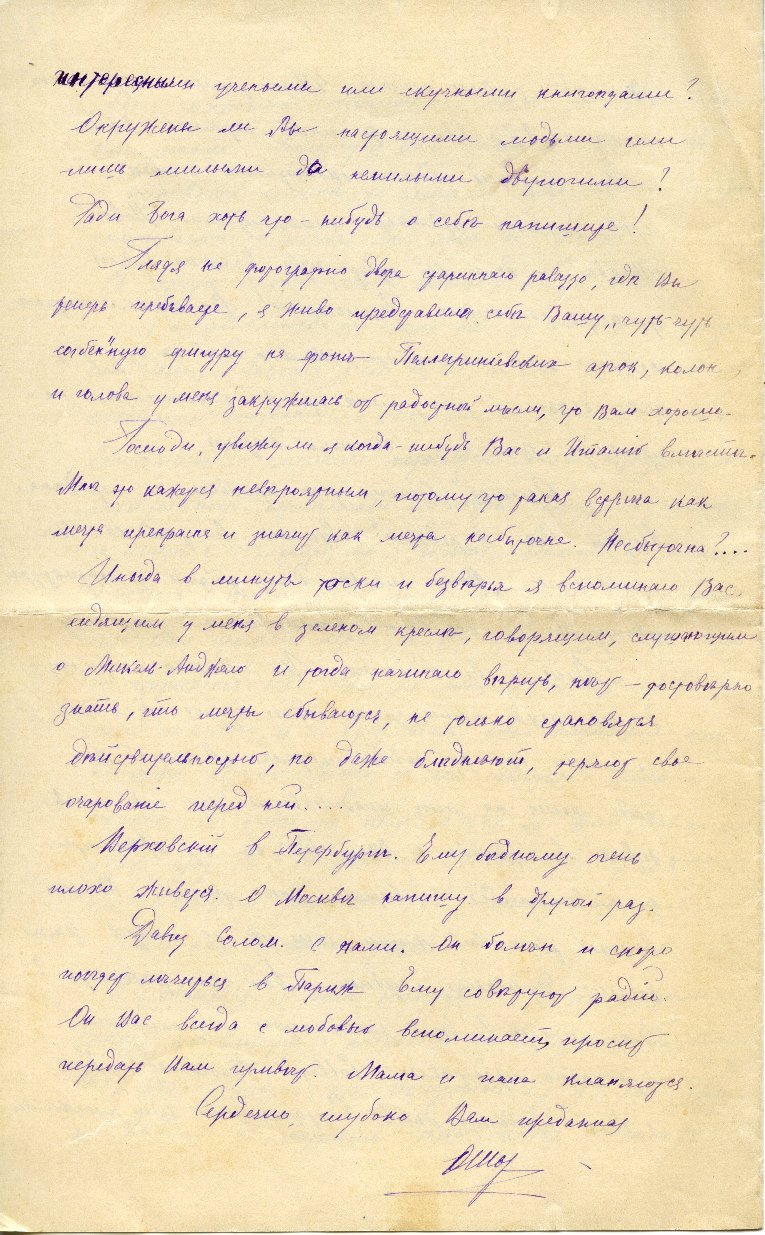 интересными учеными или скучными книгоѣдами?
Окружены ли Вы настоящими людьми или
лишь милыми да немилыми двуногими?
Ради Бога хоть что-нибудь о себѣ напишите!
Глядя на фотографію двора стариннаго palazzo, гдѣ Вы
теперь пребываете, я живо представила себѣ Вашу, чуть-чуть
согбенную фигуру на фонѣ Пеллегриніевских арок, колон,
и голова у меня закружилась от радостной мысли, что Вам хорошо.
Господи, увижу ли я когда-нибудь Вас и Италію вмѣстѣ.
Мнѣ это кажется невѣроятным, потому что такая встрѣча как
мечта прекрасна и значит как мечта несбыточна. Несбыточна?...
Иногда в минуты тоски и безвѣрья я вспоминаю Вас
сидящим у меня в зеленом креслѣ, говорящим, слушающим
о Микель-Анджело и тогда начинаю вѣрить, нѣт – достовѣрно
знать, что мечты сбываются, не только становятся
дѣйствительностью, но даже блѣднѣют, теряют свое
очарованіе перед ней....
Верховскій в Петербургѣ. Ему бѣдному очень
плохо живется. О Москвѣ напишу в другой раз.
Давид Солом. с нами. Он болѣн и скоро
поѣдет лѣчиться в Париж Ему совѣтуют радій.
Он Вас всегда с любовью вспоминает, просит
передать Вам привѣт. Мама и папа кланяются.
Сердечно, глубоко Вам преданная